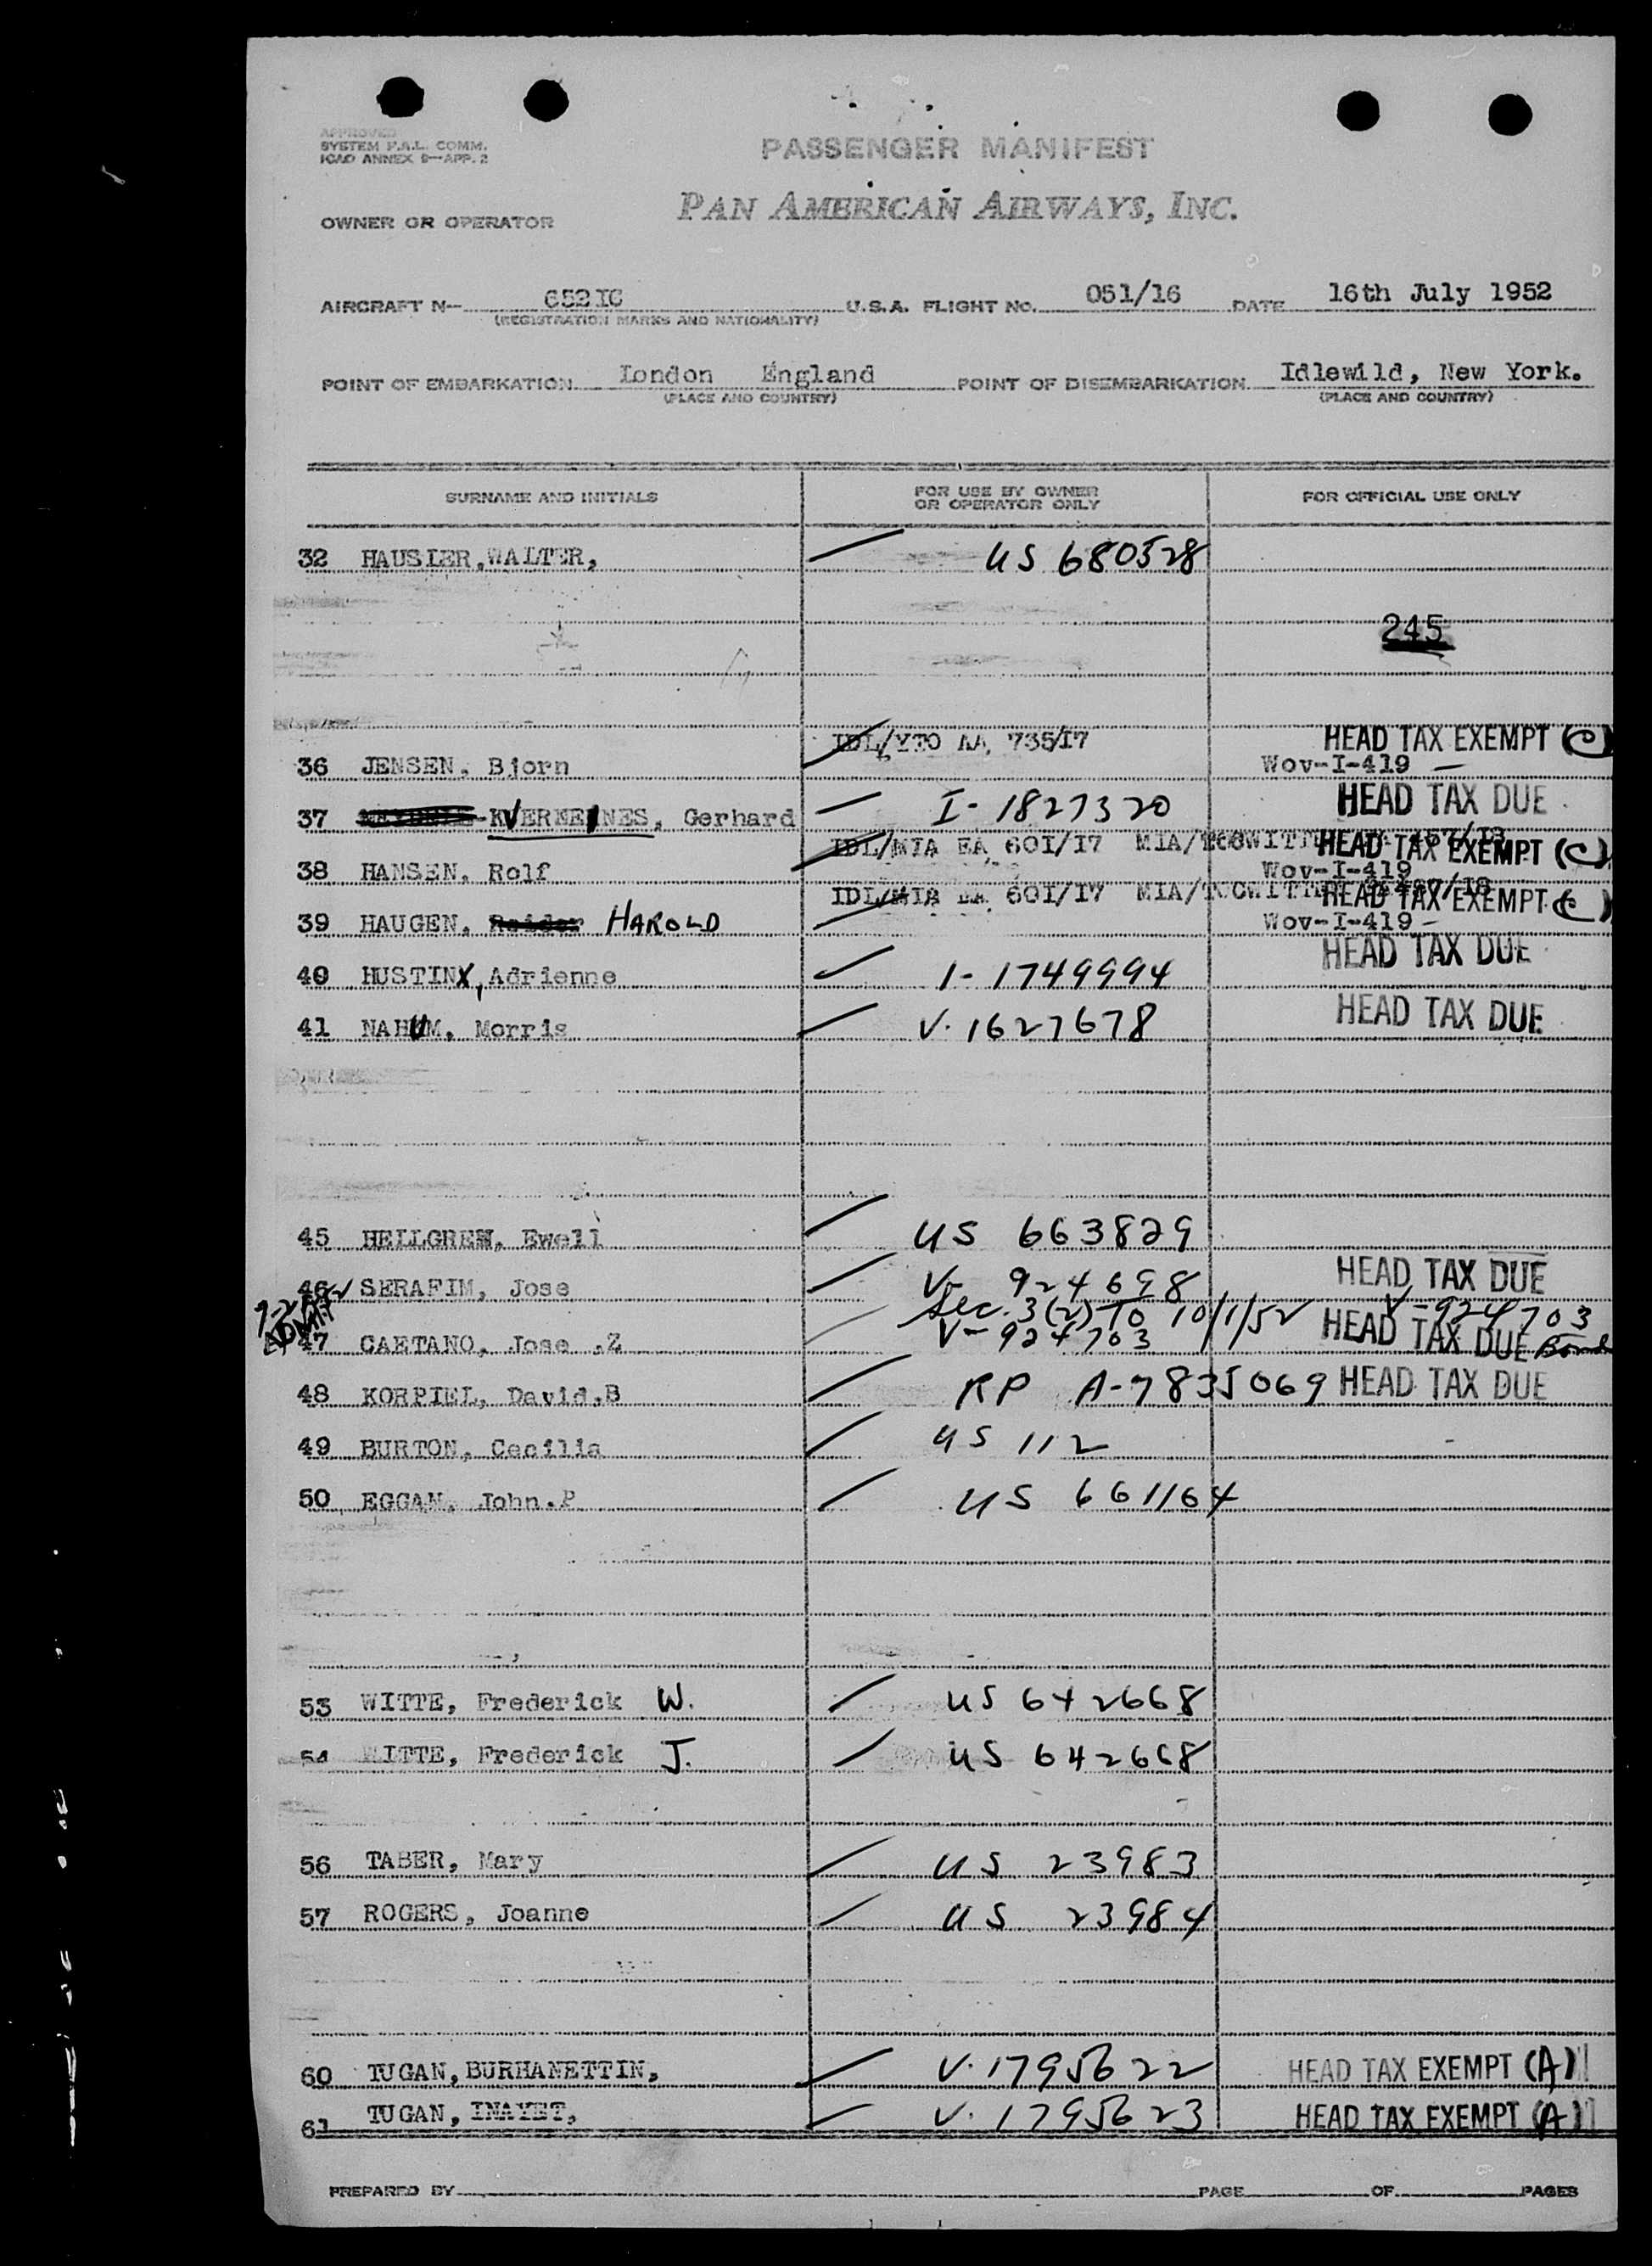 APPROVED
SYSTEM F.A.L. COMM.
ICAO ANNEX 9—APP. 2
PASSENGER MANIFEST
OWNER OR OPERATOR PAN AMERICAN AIRWAYS, INC.
AIRCRAFT N— 652IC U.S.A. FLIGHT NO. 051/16 DATE 16th July 1952
(REGISTRATION MARKS AND NATIONALITY)
POINT OF EMBARKATION London England POINT OF DISEMBARKATION Idlewild, New York.
(PLACE AND COUNTRY) (PLACE AND COUNTRY)
SURNAME AND INITIALS FOR USE BY OWNER OR OPERATOR ONLY FOR OFFICIAL USE ONLY
32 HAUSLER, WALTER, US 680528
245
IDL/YTO AA 735/I7 HEAD TAX EXEMPT (C)
36 JENSEN, Bjorn Wov-I-419 —
37 KVERNEINES, Gerhard I-1827320 HEAD TAX DUE
IDL/MIA EA 601/I7 HEAD TAX EXEMPT (C)
38 HANSEN, Rolf Wov-I-419
IDL/MIA EA 601/I7 HEAD TAX EXEMPT (C)
39 HAUGEN, Reidar HAROLD Wov-I-419 —
40 HUSTINX, Adrienne I-1749994 HEAD TAX DUE
41 NAHUM, Morris V.1627678 HEAD TAX DUE
45 HELLGREN, Ewell US 663829
46 SERAFIM, Jose V-924698 HEAD TAX DUE
Sec. 3(2) TO 10/1/52 V-924703
ADMIT
47 CAETANO, Jose .Z V-924703 HEAD TAX DUE Bond
48 KORPIEL, David.B RP A-7835069 HEAD TAX DUE
49 BURTON, Cecilia US 112
50 EGGAN, John.P US 661164
53 WITTE, Frederick W. US 642668
54 WITTE, Frederick J. US 642668
56 TABER, Mary US 23983
57 ROGERS, Joanne US 23984
60 TUGAN, BURHANETTIN, V.1795622 HEAD TAX EXEMPT (A)
61 TUGAN, INAYET, V.1795623 HEAD TAX EXEMPT (A)
PREPARED BY PAGE OF PAGES